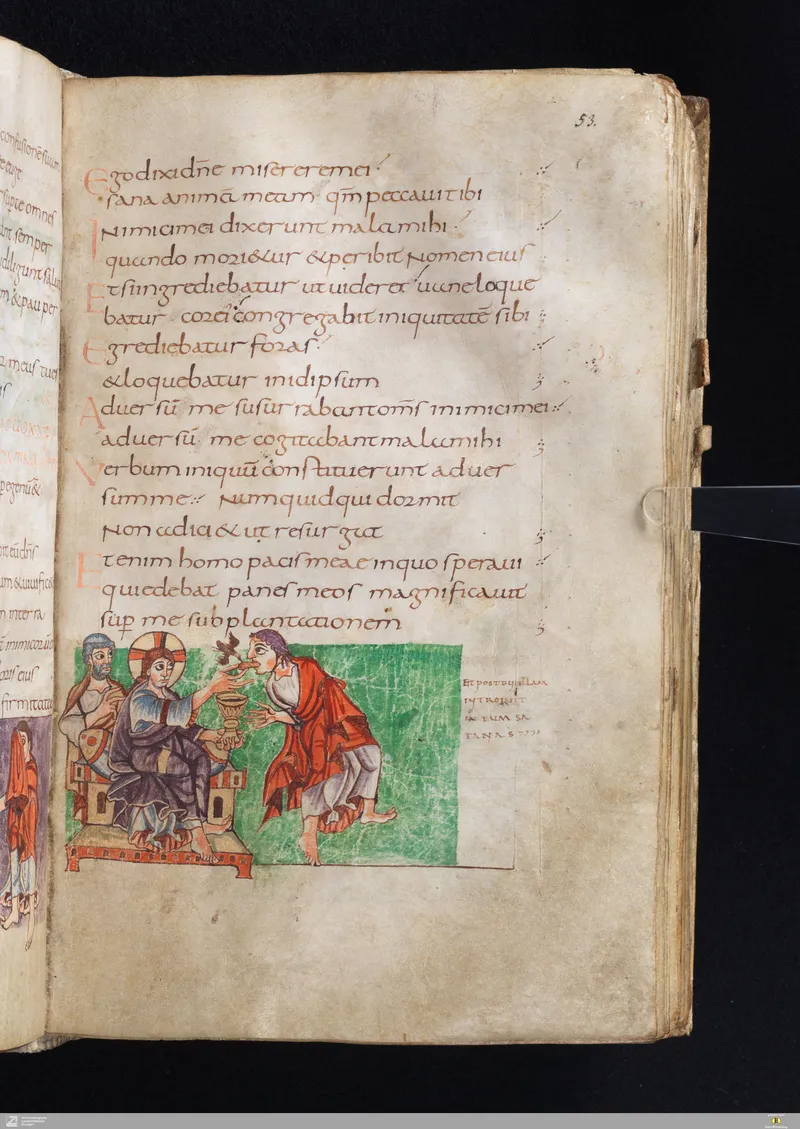 53.
Ego dixi dñe miserere mei
sana animā meam qm̄ peccaui tibi
Inimici mei dixerunt mala mihi
quando morietur & peribit nomen eius
Et si ingrediebatur ut uideret uane loque
batur cor ei congregabit iniquitatē sibi
Egrediebatur foras
& loquebatur in idipsum
Aduersū me susurrabant om̄s inimici mei
aduersū me cogitabant mala mihi
Verbum iniquū constituerunt aduer
sum me Numquid qui dormit
non adici& ut resurgat
Etenim homo pacis meae in quo speraui
qui edebat panes meos magnificauit
sup me subplantationem
Et post bucellam
introiuit
in eum sa
tanas